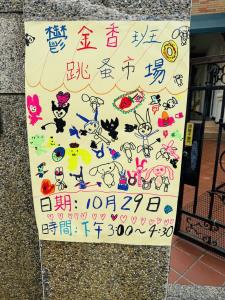 鬱金香班
跳蚤市場
日期:10月29日
時間:下午3:00~4:30